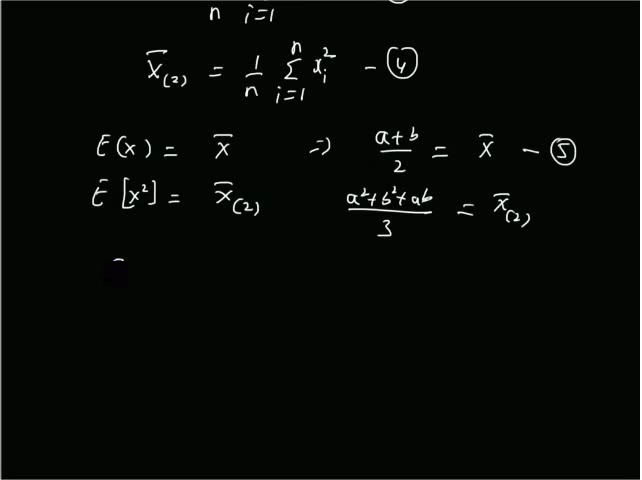 n i=1
X̄₍₂₎ = 1/n Σⁿᵢ₌₁ xᵢ² – ④
E(x) = X̄ ⇒ (a+b)/2 = X̄ – ⑤
E[x²] = X̄₍₂₎ (a²+b²+ab)/3 = X̄₍₂₎